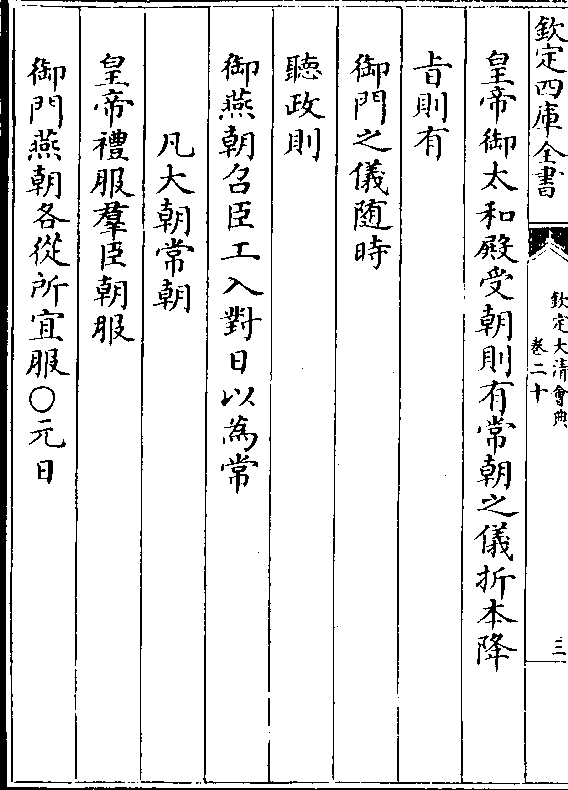 欽定四庫全書
欽定大清會典
卷二十
三
皇帝御太和殿受朝則有常朝之儀折本降
旨則有
御門之儀随時
聽政則
御燕朝召臣工入對日以為常
凡大朝常朝
皇帝禮服羣臣朝服
御門燕朝各從所宜服○元日